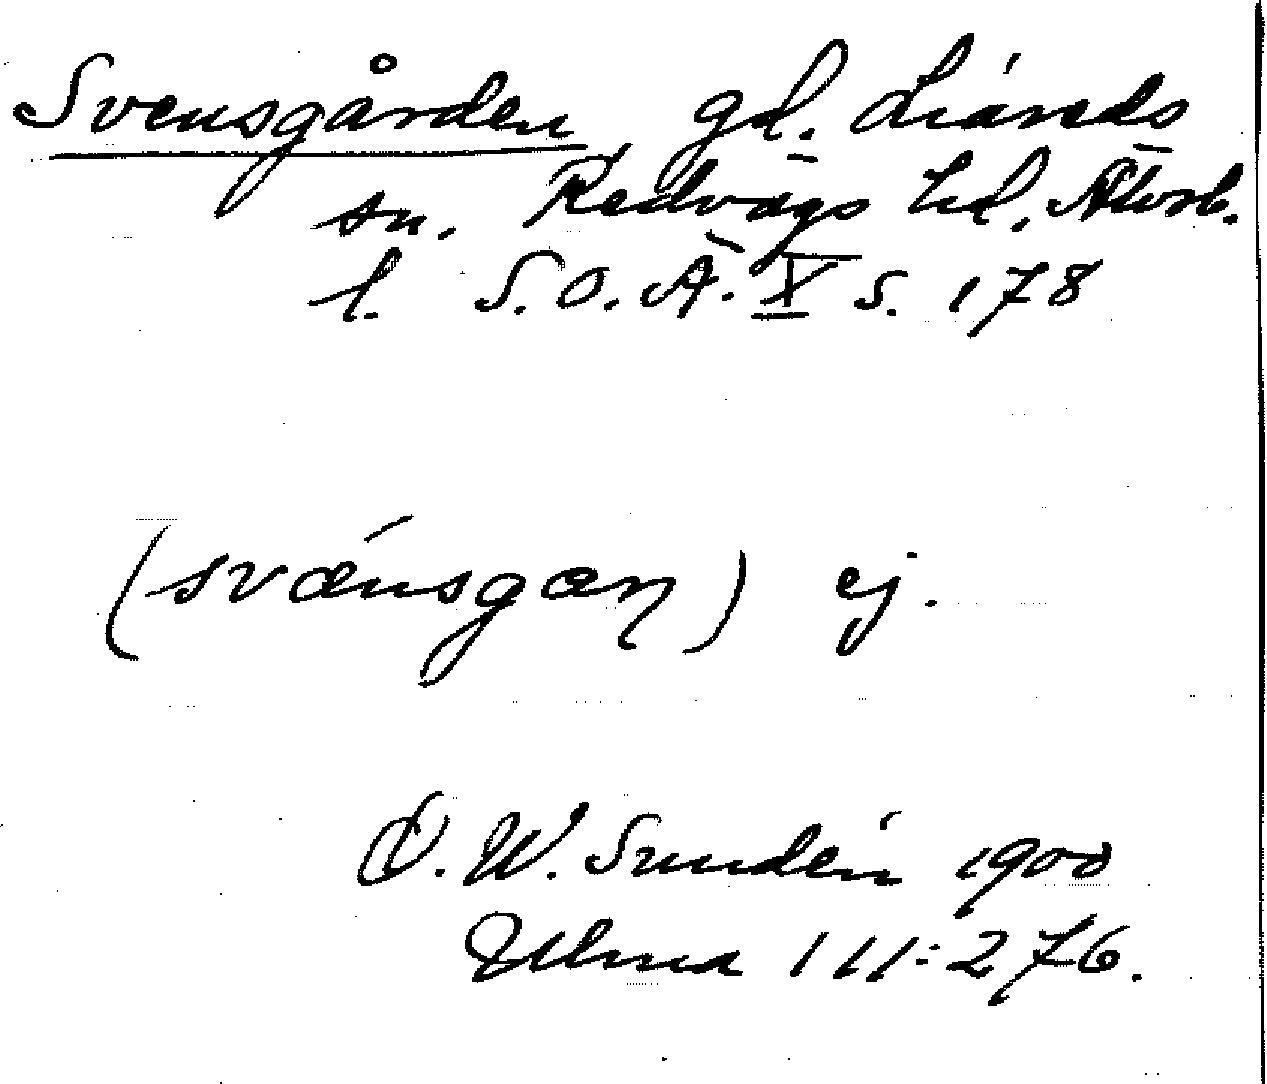 Svensgården gd. Liareds
sn. Redvägs hd. Älvsb.
l. S.O.Ä. X s. 178
(svǽnsgæɳ) ej.
D. W. Sundén 1900
Ulma 111:276.